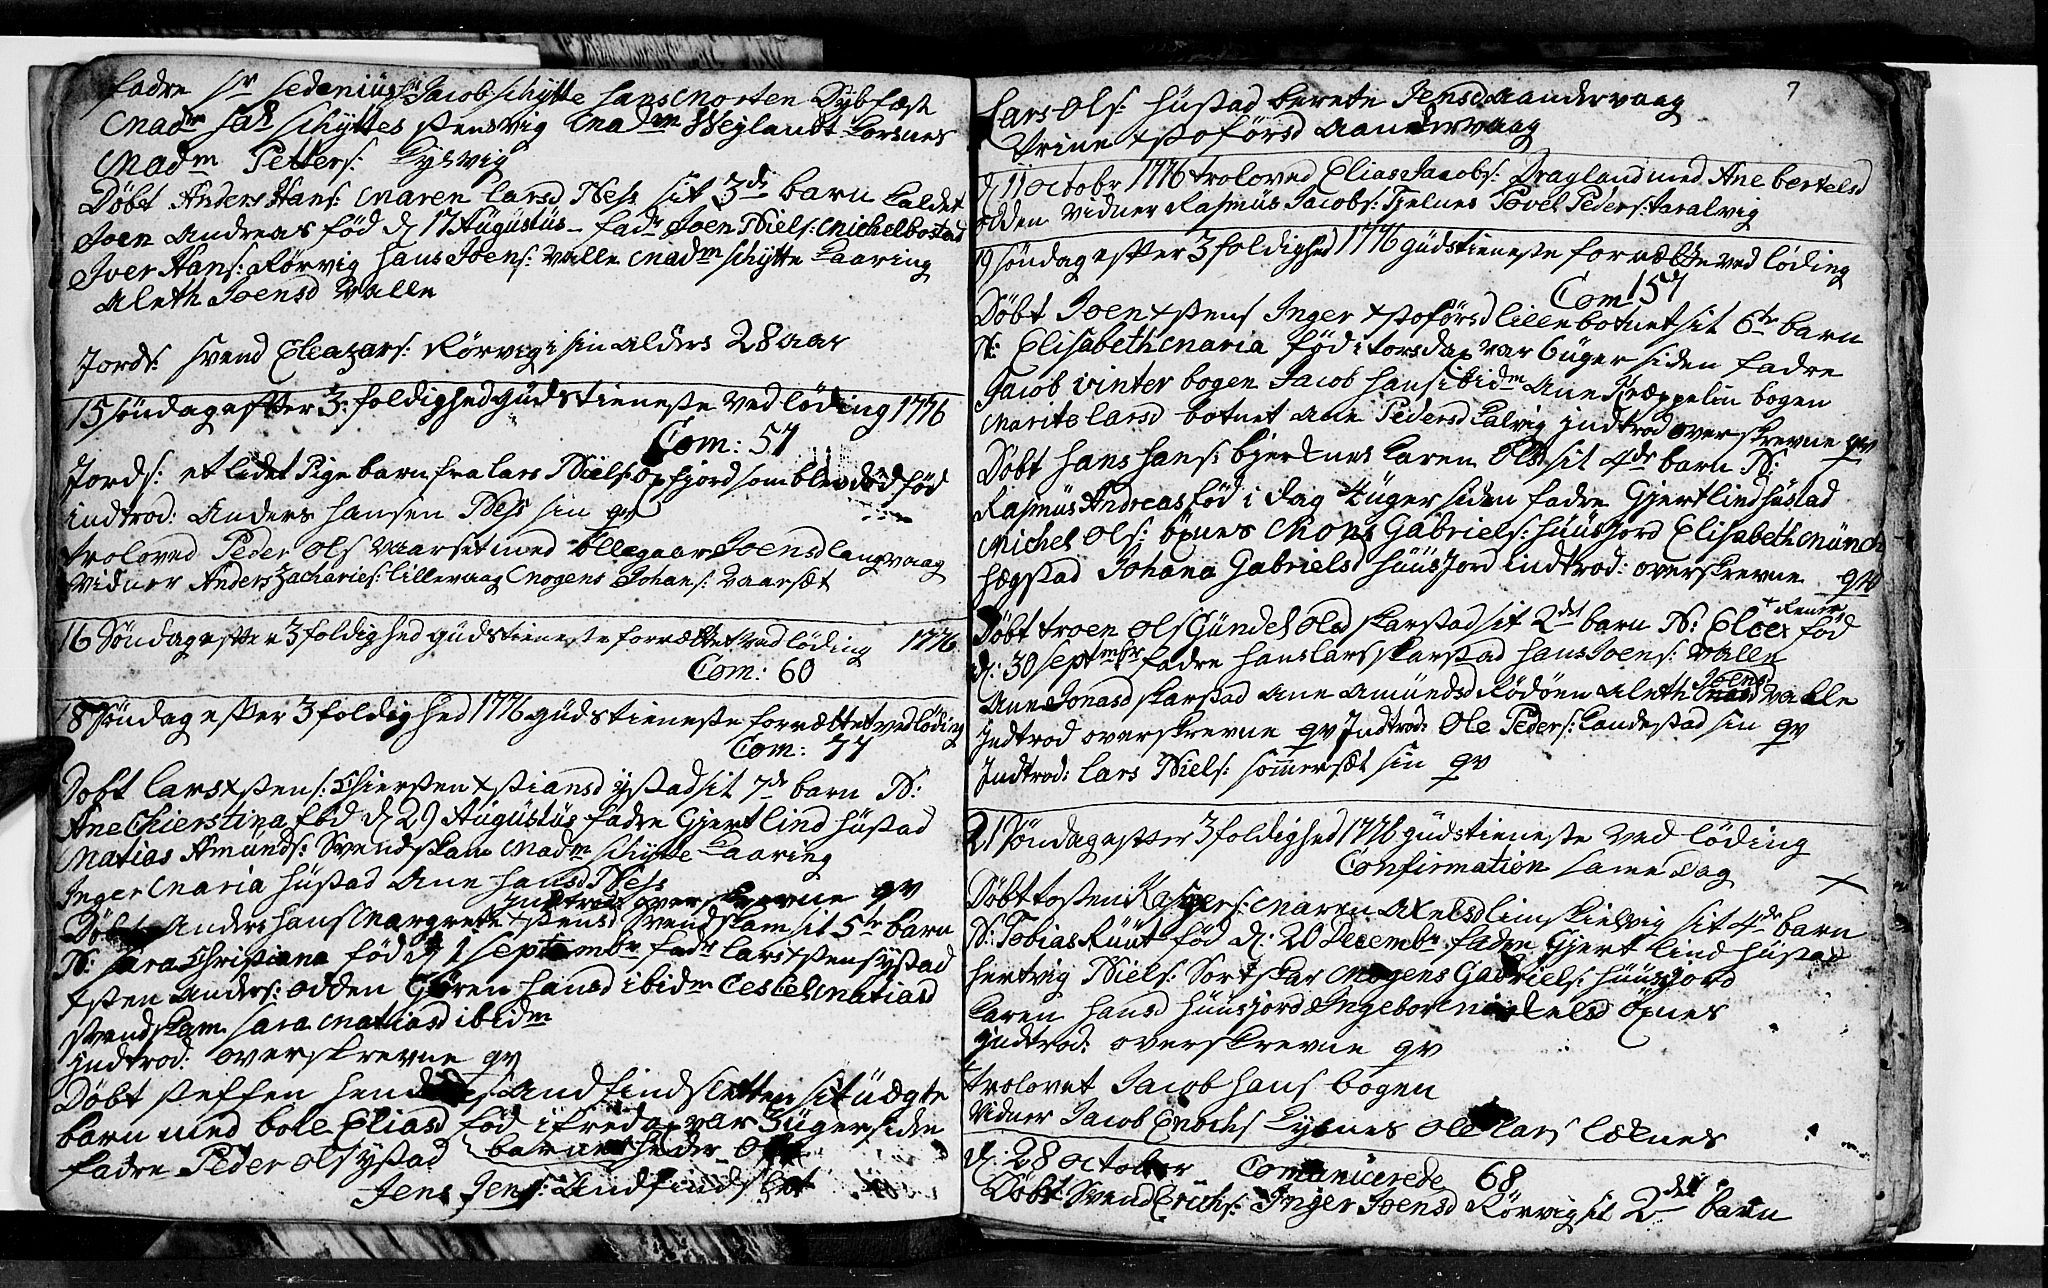 fadre Sr Sedenius Jacob Schytte Hans Morten Dybfæst
Madm Sal Schyttes Stensvig Madm Weylandt Korsnes
Madm Petters: Kysvig
Døbt Anders Hans: Maren Larsd Ness sit 3de barn kaldet
Joen Andreas fød d 17 Augustus fadr Joen Niels: Michelbostad
Iver Hans: Rørvig Hans Joens: Valle Madm Schytte Kaaring
Aleth Joensd Valle
Jords: Svend Eleazars: Rørvig i sin alders 28 aar
15 Søndag efter 3:foldighed Gudstieneste ved Løding 1776
Com: 57
Jords: et lidet Pigebarn fra Lars Niels: Opfjord som blev død fød
Indtrod: Anders Hansen Ness sin qv
Troloved Peder Ols Vaarset med Ellegaar Joensd Langvaag
Vidner Anders Zacharies: Lillevaag Mogens Johans: Vaarsæt
16 Søndag efter 3foldighed Gudstieneste forrættet ved Løding 1776
Com: 60
18 Søndag efter 3foldighed 1776 Gudstieneste forrættet ved Løding
Com: 77
Døbt Lars Xstens: Chiersten Xstiansd Ystad sit 7de barn N:
Ane Chierstina fød d 29 Augustus fadre Gjert Lind Hustad
Matias Amunds: Svendskam Madm Schytte Kaaring
Inger Maria Hustad Ane Hansd Ness
Indtrod overskrevne qv
Døbt Anders Hans Margrete Xstensd Svendskam sit 5te barn
N: Sara Christiana fød d 1 Septembr fadr Lars Xstens Ystad
Xsten Anders: Odden Giøren Hansd ibidm Cescel Matiasd
Svendskam Sara Matiasd ibidm
Indtrod: overskrevne qv
Døbt Steffen Andfindsletten sit uægte
barn med Bole Eliasd fød i fredag var 3 uger siden
fadre Peder Ols Ystad
Jens Jens: Andfindslet
7
Lars Ols: Hustad Berete Jensd Aandervaag
Trine Xstoførsd Aandervaag
d 11 Octobr 1776 troloved Elias Jacobs: Dragland med Ane Bertelsd
Odden Vidner Rasmus Jacobs: Tjelnes Povel Peders: Taralvig
19 Søndag efter 3foldighed 1776 Gudstieneste forrætte ved Løding
Com 157
Døbt Joen Xstens Inger Xstoførsd Lillebotnet sit 6te barn
N: Elisabeth Maria fød i torsdag var 6 uger siden fadre
Jacob Winter Bogen Jacob Hans ibidm Ane Kræppelin Bogen
Marite Larsd Botnet Ane Pedersd Kalvig Indtrod overskrevne qv
Døbt Hans Hans: Kjerknes Karen Olsd sit 4de barn N:
Rasmus Andreas fød i dag 4 uger siden fadre Gjert Lind Hustad
Michel Ols: Øxnes Mons Gabriels: Huusjord Elisabeth Munch
Hægstad Johana Gabrielsd Huusjord Indtrod: overskrevne qv
Døbt Troen Ols Gundel Olsd Skarstad sit 2det barn N: fød
d: 30 Septembr fadre Hans Lars Skarstad Hans Joens: Valle
Ane Jonasd Skarstad Ane Amundsd Rødøen Aleth Joensd Valle
Indtrod overskrevne qv Indtrod: Ole Peders: Kandestad sin qv
Indtrod: Lars Niels: Sommersæt sin qv
21 Søndag efter 3foldighed 1776 Gudstieneste ved Løding
Confirmation same Dag
Døbt Tosten Kaspers: Maren Axelsd Limskielvig sit 4de barn
N: Tobias Ruut fød d: 20 Decembr fadre Gjert Lind Hustad
Hertvig Niels: Sortskar Mogens Gabriels: Huusjord
Karen Hansd Huusjord Ingebor Øxnes
Indtrod: overskrevne qv
Trolovet Jacob Hans Bogen
Vidner Jacob Enochs Kysnes Ole Lars Læknes
d: 28 October Comunicerede 68
Døbt Svend Erichs: Inger Joensd Rørvig sit 2det barn